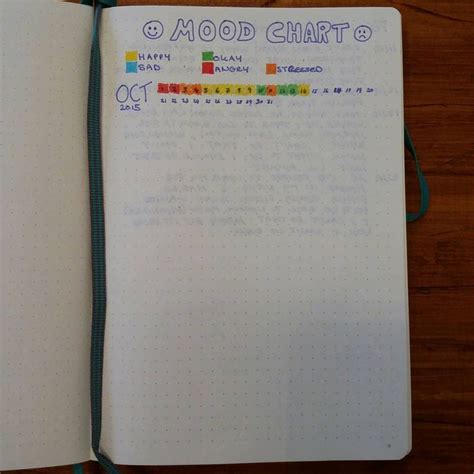 MOOD CHART
HAPPY OKAY
SAD ANGRY STRESSED
OCT 1 2 3 4 5 6 7 8 9 10 11 12 13 14 15 16 17 18 19 20
2015 21 22 23 24 25 26 27 28 29 30 31